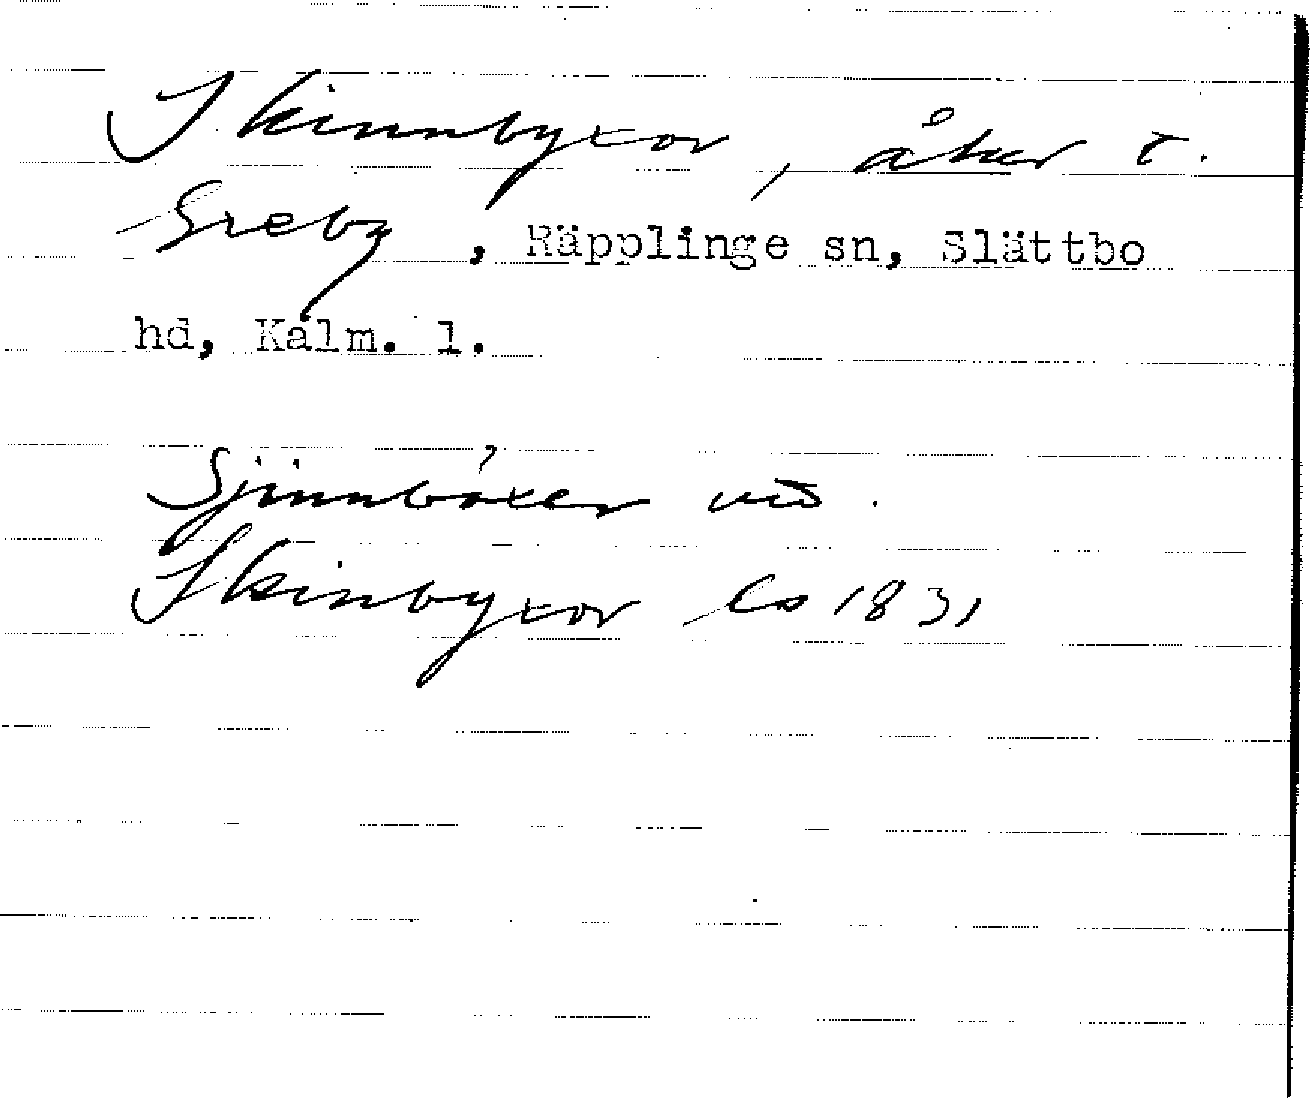 Skinnbyxor, åker t.
Greby, Räpplinge sn, Slättbo
hd, Kalm. l.
Sjinnbóxer
Skinbyxor Ls 1831